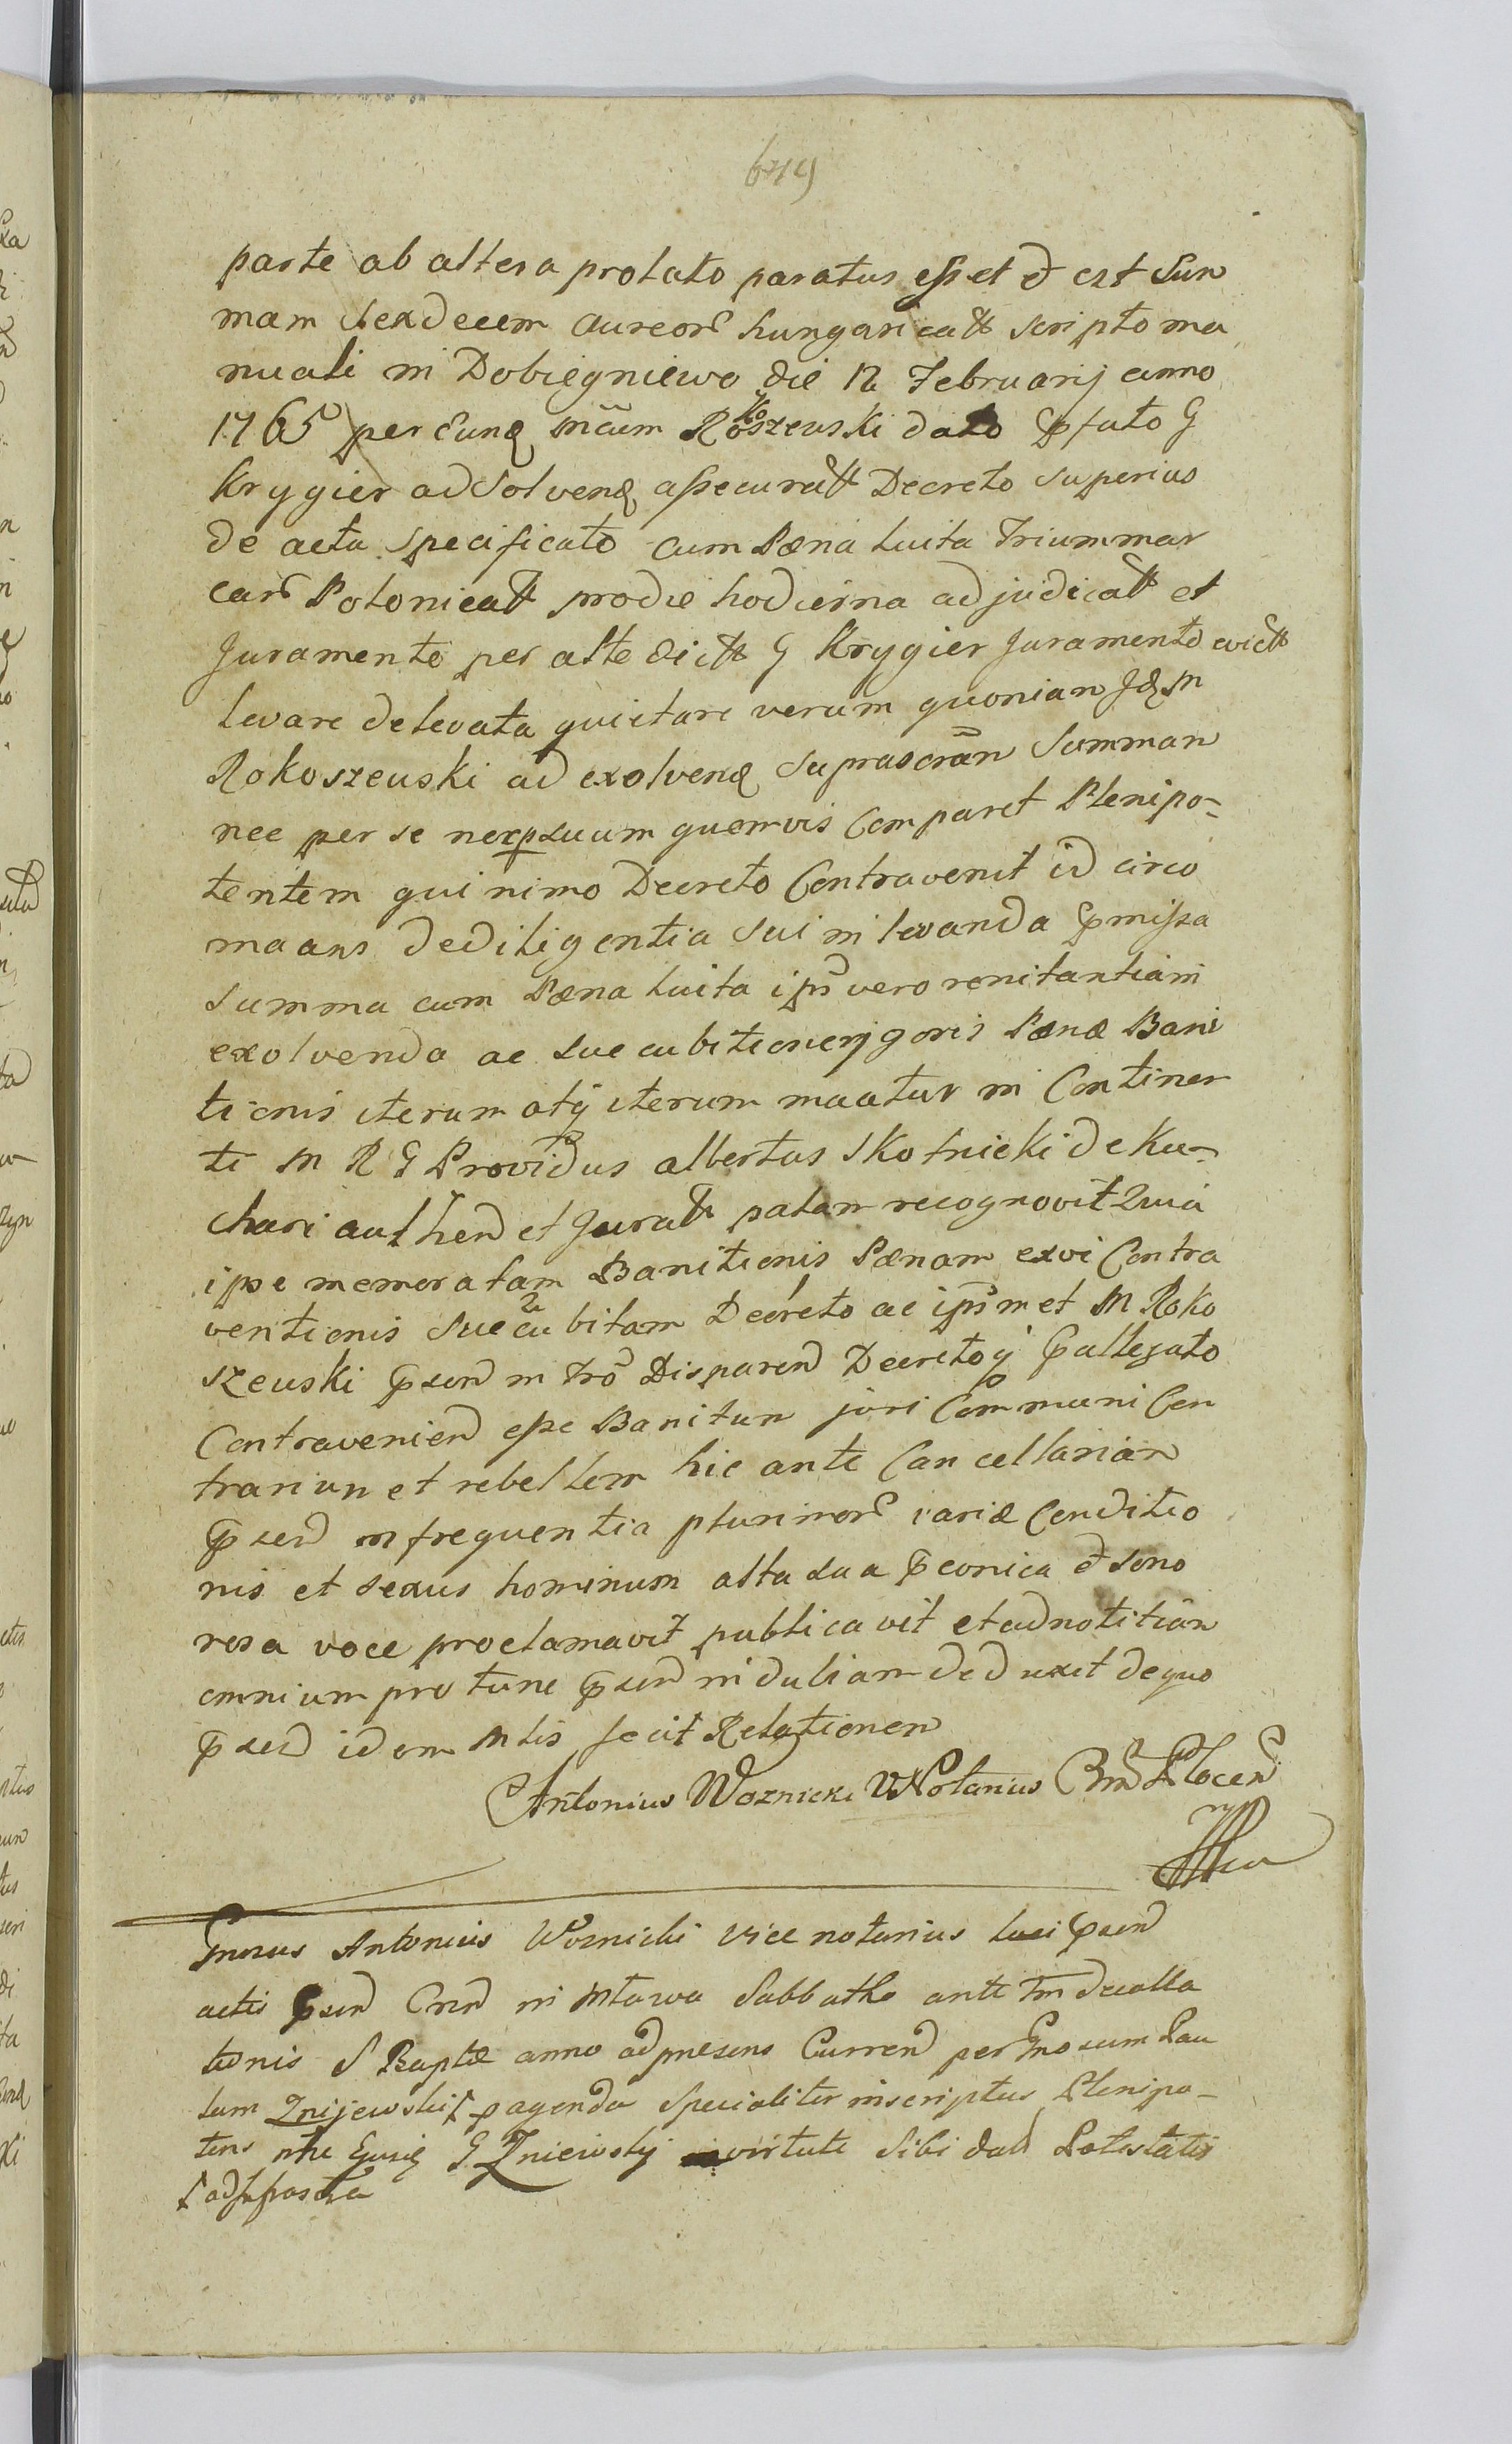 649
parte ab altera prolato paratus esset et est Sum
mam sexdecem aureorũ hungaricatt scripto ma
nuali in Dobiegniewo die 12 Februarij anno
1765 per eunq mĩcum Rokoszewski dato Pfato G
Krygier ad solvenq assecuratt Decreto superius
de acta specificato cum Pæna luita Trium mar
carũ Polonicatt pro die hodierna adjudicatt et
Juramento per alte dictt G Krygier Juramento evictt
levare de levata quietare verum quoniam Jdq M
Rokoszewski ad exolvenq suprascrām Summam
nec per se neq p suum quemvis Comparet Plenipo-
tentem qui nimo Decreto Contravenit id circo
maans de diligentia sui in levanda Pmissa
summa cum Pæna luita ips̃ vero renitantiam
exolvenda ac succubitione rygoris Pænæ Bani
tionis iterum atq iterum maatur in Continen
ti M R G Providus albertus Skotnicki de Ku-
chari authen et Juratt palam recognovit Quia
ipse memoratam Banitionis Pænam ex vi Contra
ventionis succubitam Decreto ac ips̃met M Roko
szewski Psen in Tr̃o Disparen Decretoq Pallegato
Contravenien esse Banitum juri Communi Con
trarium et rebellem hic ante Cancellariam
Psen in frequentia plurimorũ variæ Conditio
nis et sexus hominum alta sua Pconica et sono
rosa voce proclamavit publicavit et ad notitiam
omnium pro tunc Psen in dubiam deduxit de quo
Psen idem Mlis fecit Relationem
Antonius Woznicki VNotarius Plocen
Gnrosus Antonius Woznicki vice notarius Psen
actis Psen in Mlawa Sabbatho ante decolla
tionis S Baptæ anno ad præsens Curren per Gnrosum Pau
lum Znijewski ł p agenda specialiter inscriptus Plenipo-
tens G Zniewskij virtute sibi dat Potestatis
ł ad